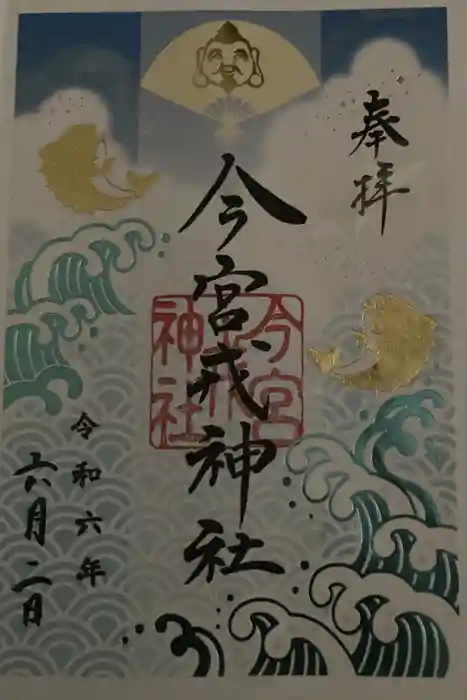 奉拝
今宮戎神社
今宮戎神社
令和六年
六月二日